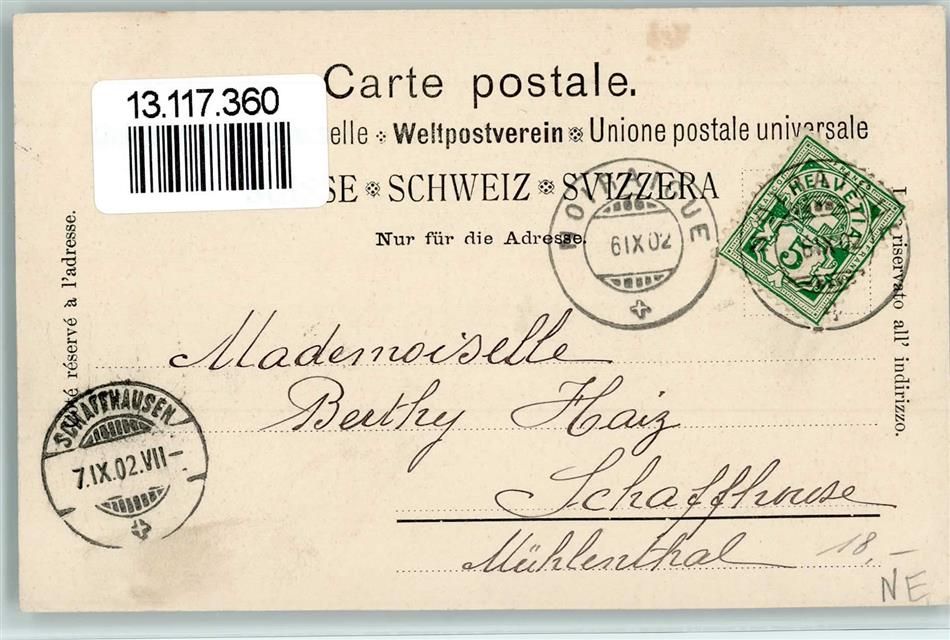 Carte postale.
13.117.360
elle Weltpostverein Unione postale universale
SE SCHWEIZ SVIZZERA
Nur für die Adresse.
6 IX 02
HELVETIA
5
té réservé à l'adresse.
riservato all' indirizzo.
Mademoiselle
Berthy Haiz
Schaffhouse
Mühlenthal
SCHAFFHAUSEN
7.IX.02.VII-
18,-
NE